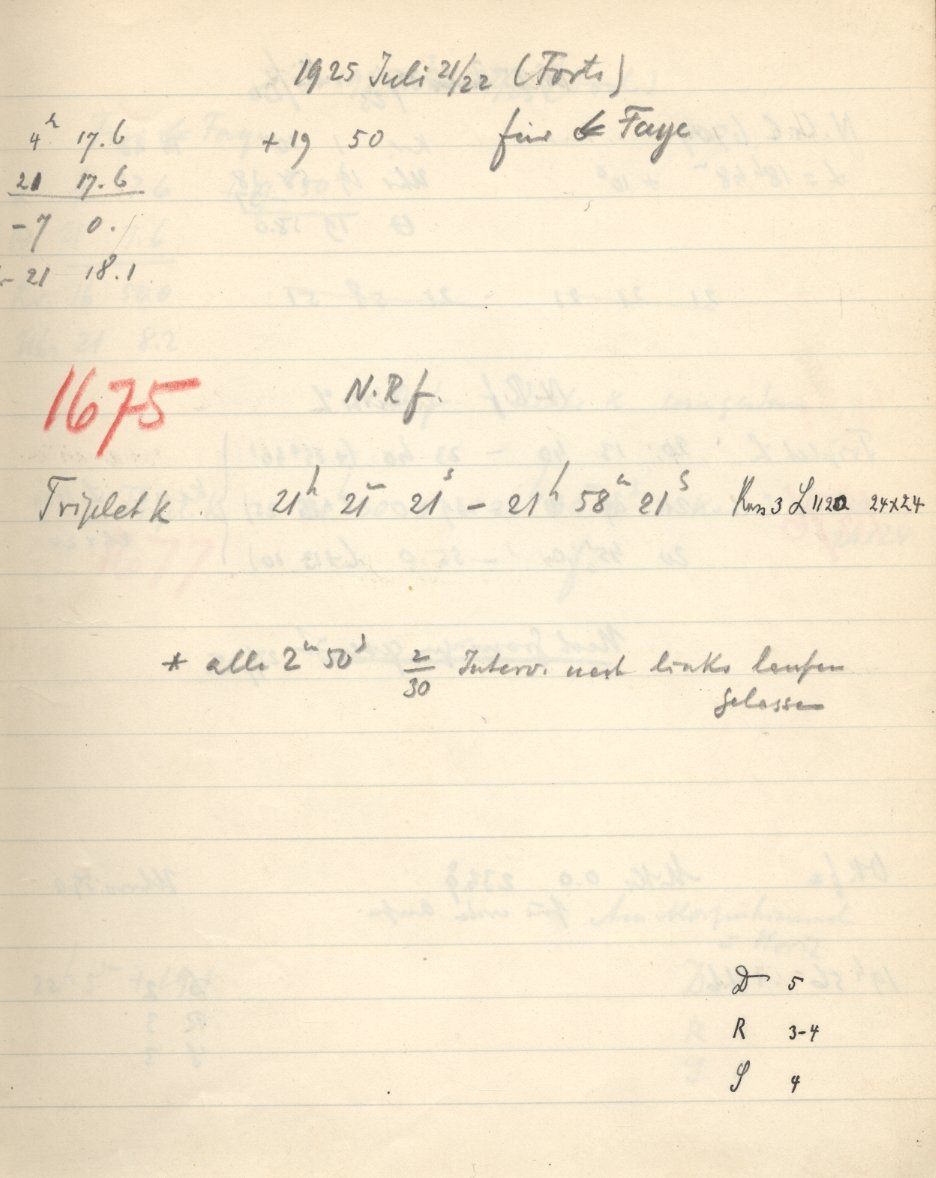 1925 Juli 21/22 (Forts)
4h 17.6 +19 50 für Faye
21 17.6
-7 0.
- 21 18.1
1675 N.R.f.
Triplet k. 21h 25m 21s - 21h 58m 21s 3 L 1120 24x24
* alle 2m 50s 2/30 Interv. nach links laufen
gelassen
D 5
R 3-4
S 4